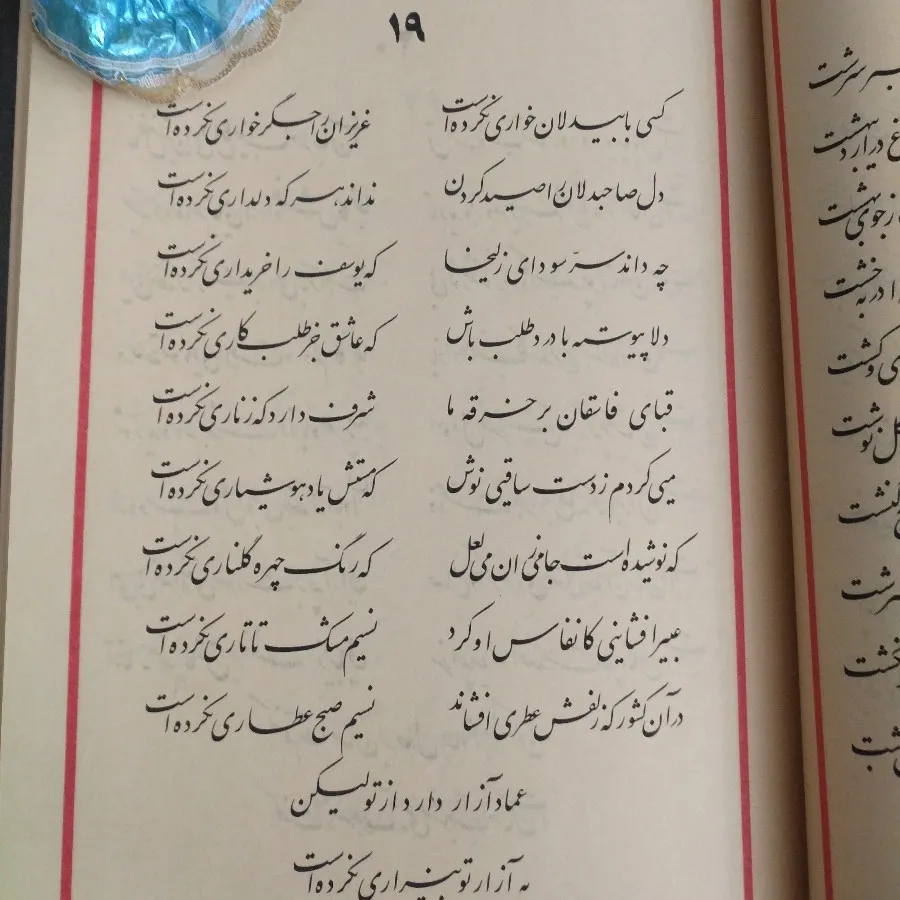 ۱۹
کسی با بیدلان خواری نکرده است عزیزان را جگرخواری نکرده است
دل صاحبدلان را صید کردن نداند هر که دلداری نکرده است
چه داند سرّ سودای زلیخا که یوسف را خریداری نکرده است
دلا پیوسته با درد طلب باش که عاشق جز طلب کاری نکرده است
قبای فاسقان بر خرقه ما شرف دارد که زناری نکرده است
میی کردم ز دست ساقیی نوش که مستش یاد هوشیاری نکرده است
که نوشیده است جامی زان می لعل که رنگ چهره گلناری نکرده است
عبیر افشانیی کانفاس او کرد نسیم مشک تاتاری نکرده است
در آن کشور که زلفش عطری افشاند نسیم صبح عطاری نکرده است
عماد آزار دارد از تو لیکن
به آزار تو بیزاری نکرده است
سرشت
در اردبهشت
ز جوی بهشت
در به خشت
کشت
نوشت
کنشت
سرشت